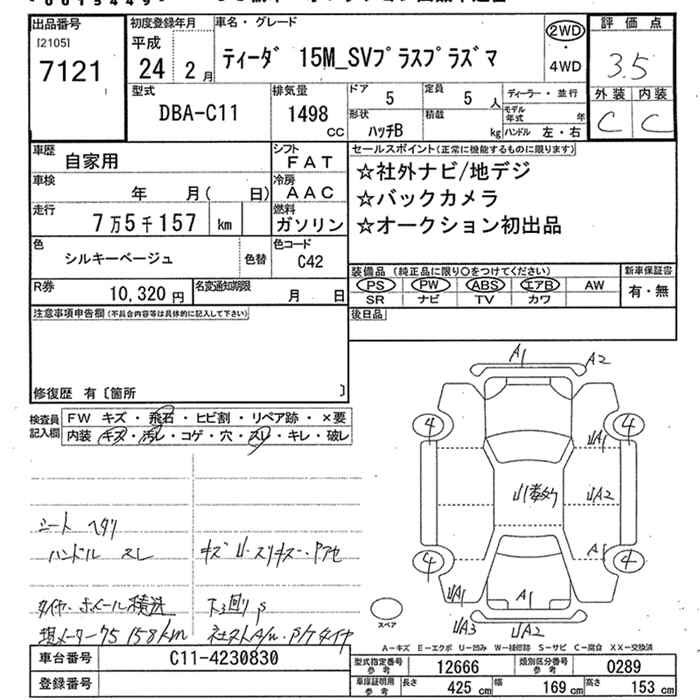 出品番号
[2105]
7121
初度登録年月
平成
24 2月
車名・グレード
ティーダ 15M_SVプラスプラズマ
2WD
・
4WD
評価点
3.5
外装 内装
C C
型式
DBA-C11
排気量
1498
CC
ドア 5
定員 5 人
形状 ハッチB
積載 kg
ディーラー・並行
モデル年式 年
ハンドル 左・右
車歴 自家用
シフト FAT
車検 年 月( 日)
冷房 AAC
走行 7万5千157 km
燃料 ガソリン
色 シルキーベージュ
色替
色コード C42
R券 10,320円
名変通知期限 月 日
セールスポイント(正常に機能するものに限ります)
☆社外ナビ/地デジ
☆バックカメラ
☆オークション初出品
装備品 (純正品に限り○をつけてください)
PS PW ABS エアB AW
SR ナビ TV カワ
新車保証書
有・無
後日品
注意事項申告欄(不具合内容等は具体的に記入して下さい)
修復歴 有〔箇所 〕
検査員
記入欄
FW キズ・飛石・ヒビ割・リペア跡・×要
内装 キズ・汚レ・コゲ・穴・スレ・キレ・破レ
シート ヘタリ
ハンドル スレ
キズ
タイヤ・ホイール積込
下回り
現メーター75158km
A1
A2
4
4
UA1
UA2
A1
4
4
UA1
A1
UA3
UA2
スペア
A-キズ E-エクボ U-凹み W-補修跡 S-サビ C-腐食 XX-交換済
車台番号 C11-4230830
登録番号
型式指定番号
参考
12666
類別区分番号
参考
0289
車庫証明用
参考
長さ 425 cm
幅 169 cm
高さ 153 cm